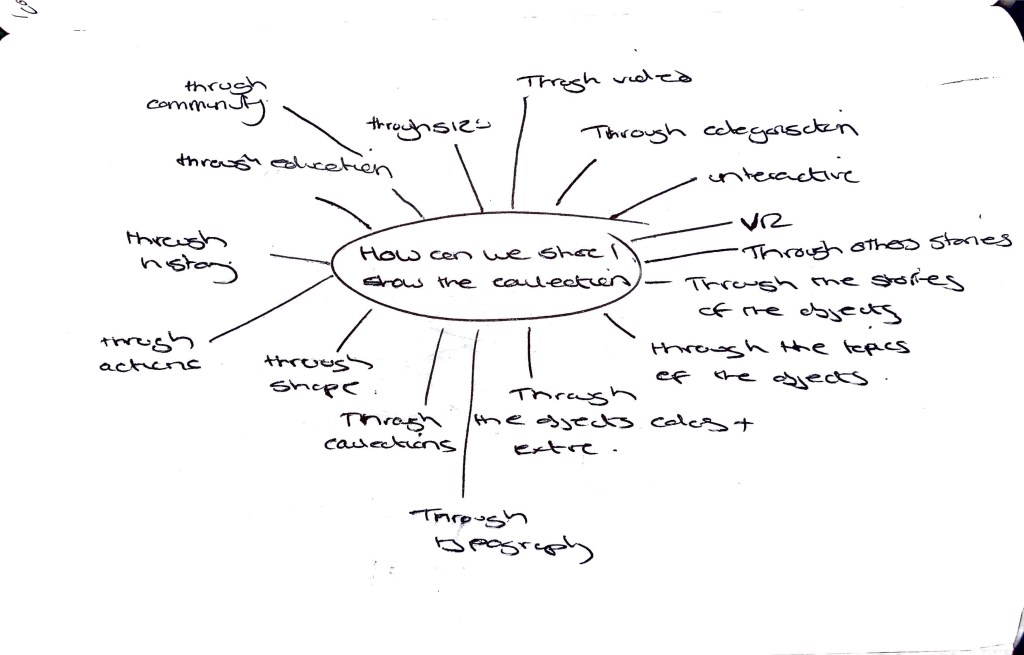 through
community
Through video
through size
Through categorisation
through education
interactive
VR
through
history
How can we share /
show the collection
Through others stories
Through the stories
of the objects
through
actions
through
shape.
through the topics
of the objects.
Through
the objects colors +
extre.
Through
collections
Through
typography